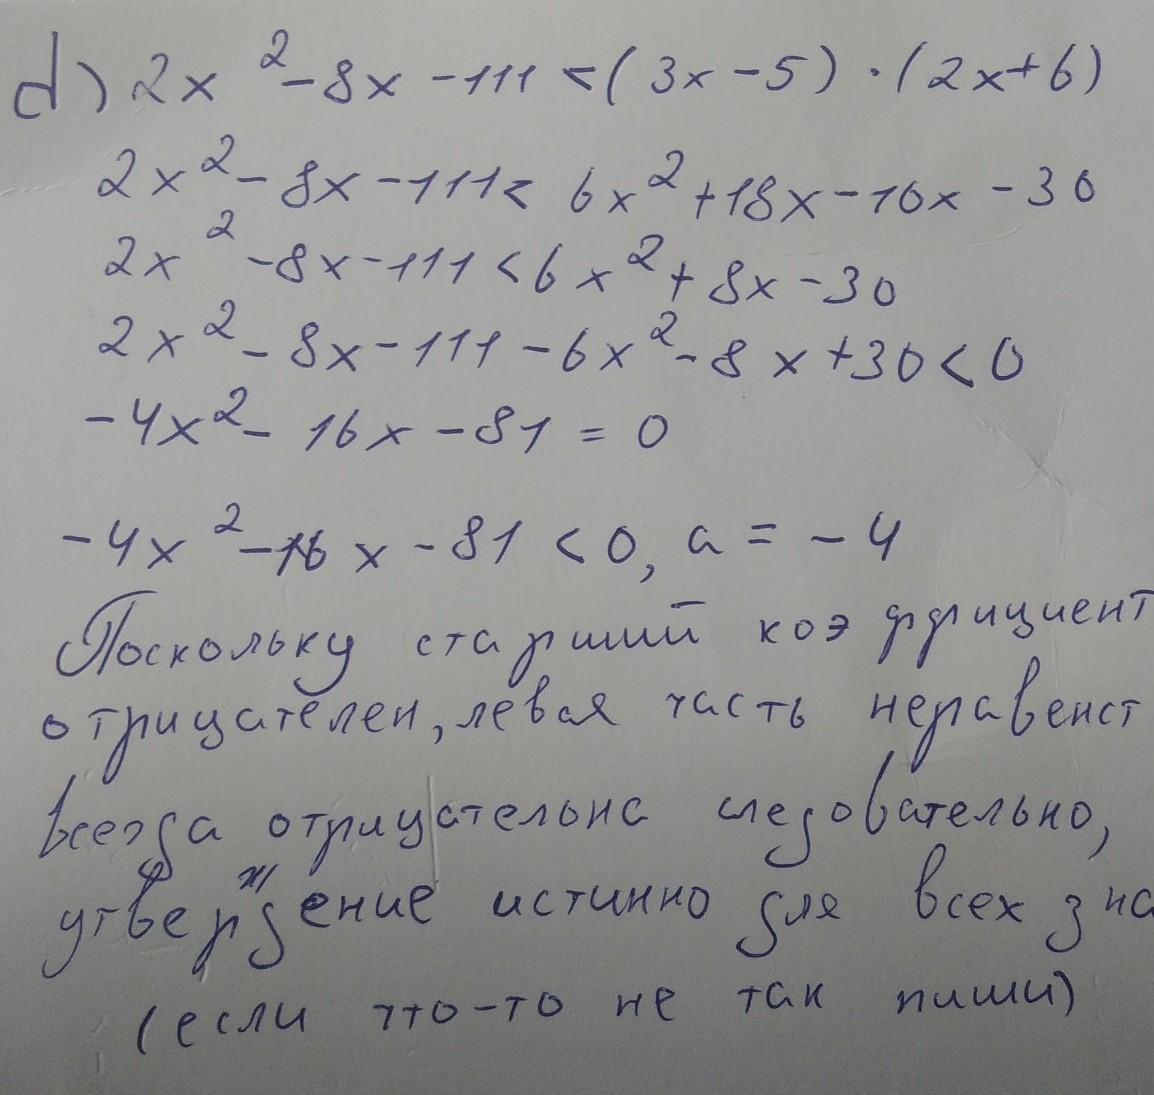 d) 2x² - 8x - 111 < (3x - 5) · (2x + 6)
2x² - 8x - 111 < 6x² + 18x - 10x - 30
2x² - 8x - 111 < 6x² + 8x - 30
2x² - 8x - 111 - 6x² - 8x + 30 < 0
-4x² - 16x - 81 = 0
-4x² - 16x - 81 < 0, a = -4
Поскольку старший коэффициент
отрицателен, левая часть неравенст
всегда отрицательна следовательно,
утверждение истинно для всех зна
(если что-то не так пиши)